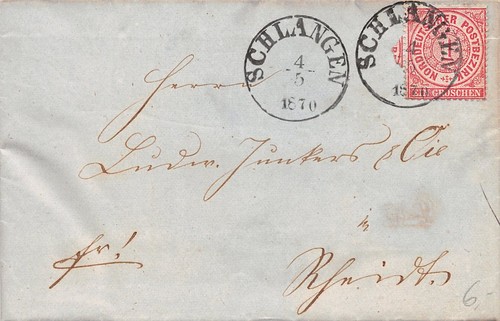 SCHLANGEN
4
5
1870
SCHLANGEN
NORDDEUTSCHER POSTBEZIRK
EIN GROSCHEN
Herrn
Ludw. Junkers & Cie
in
fr!
Rheidt.
6,-